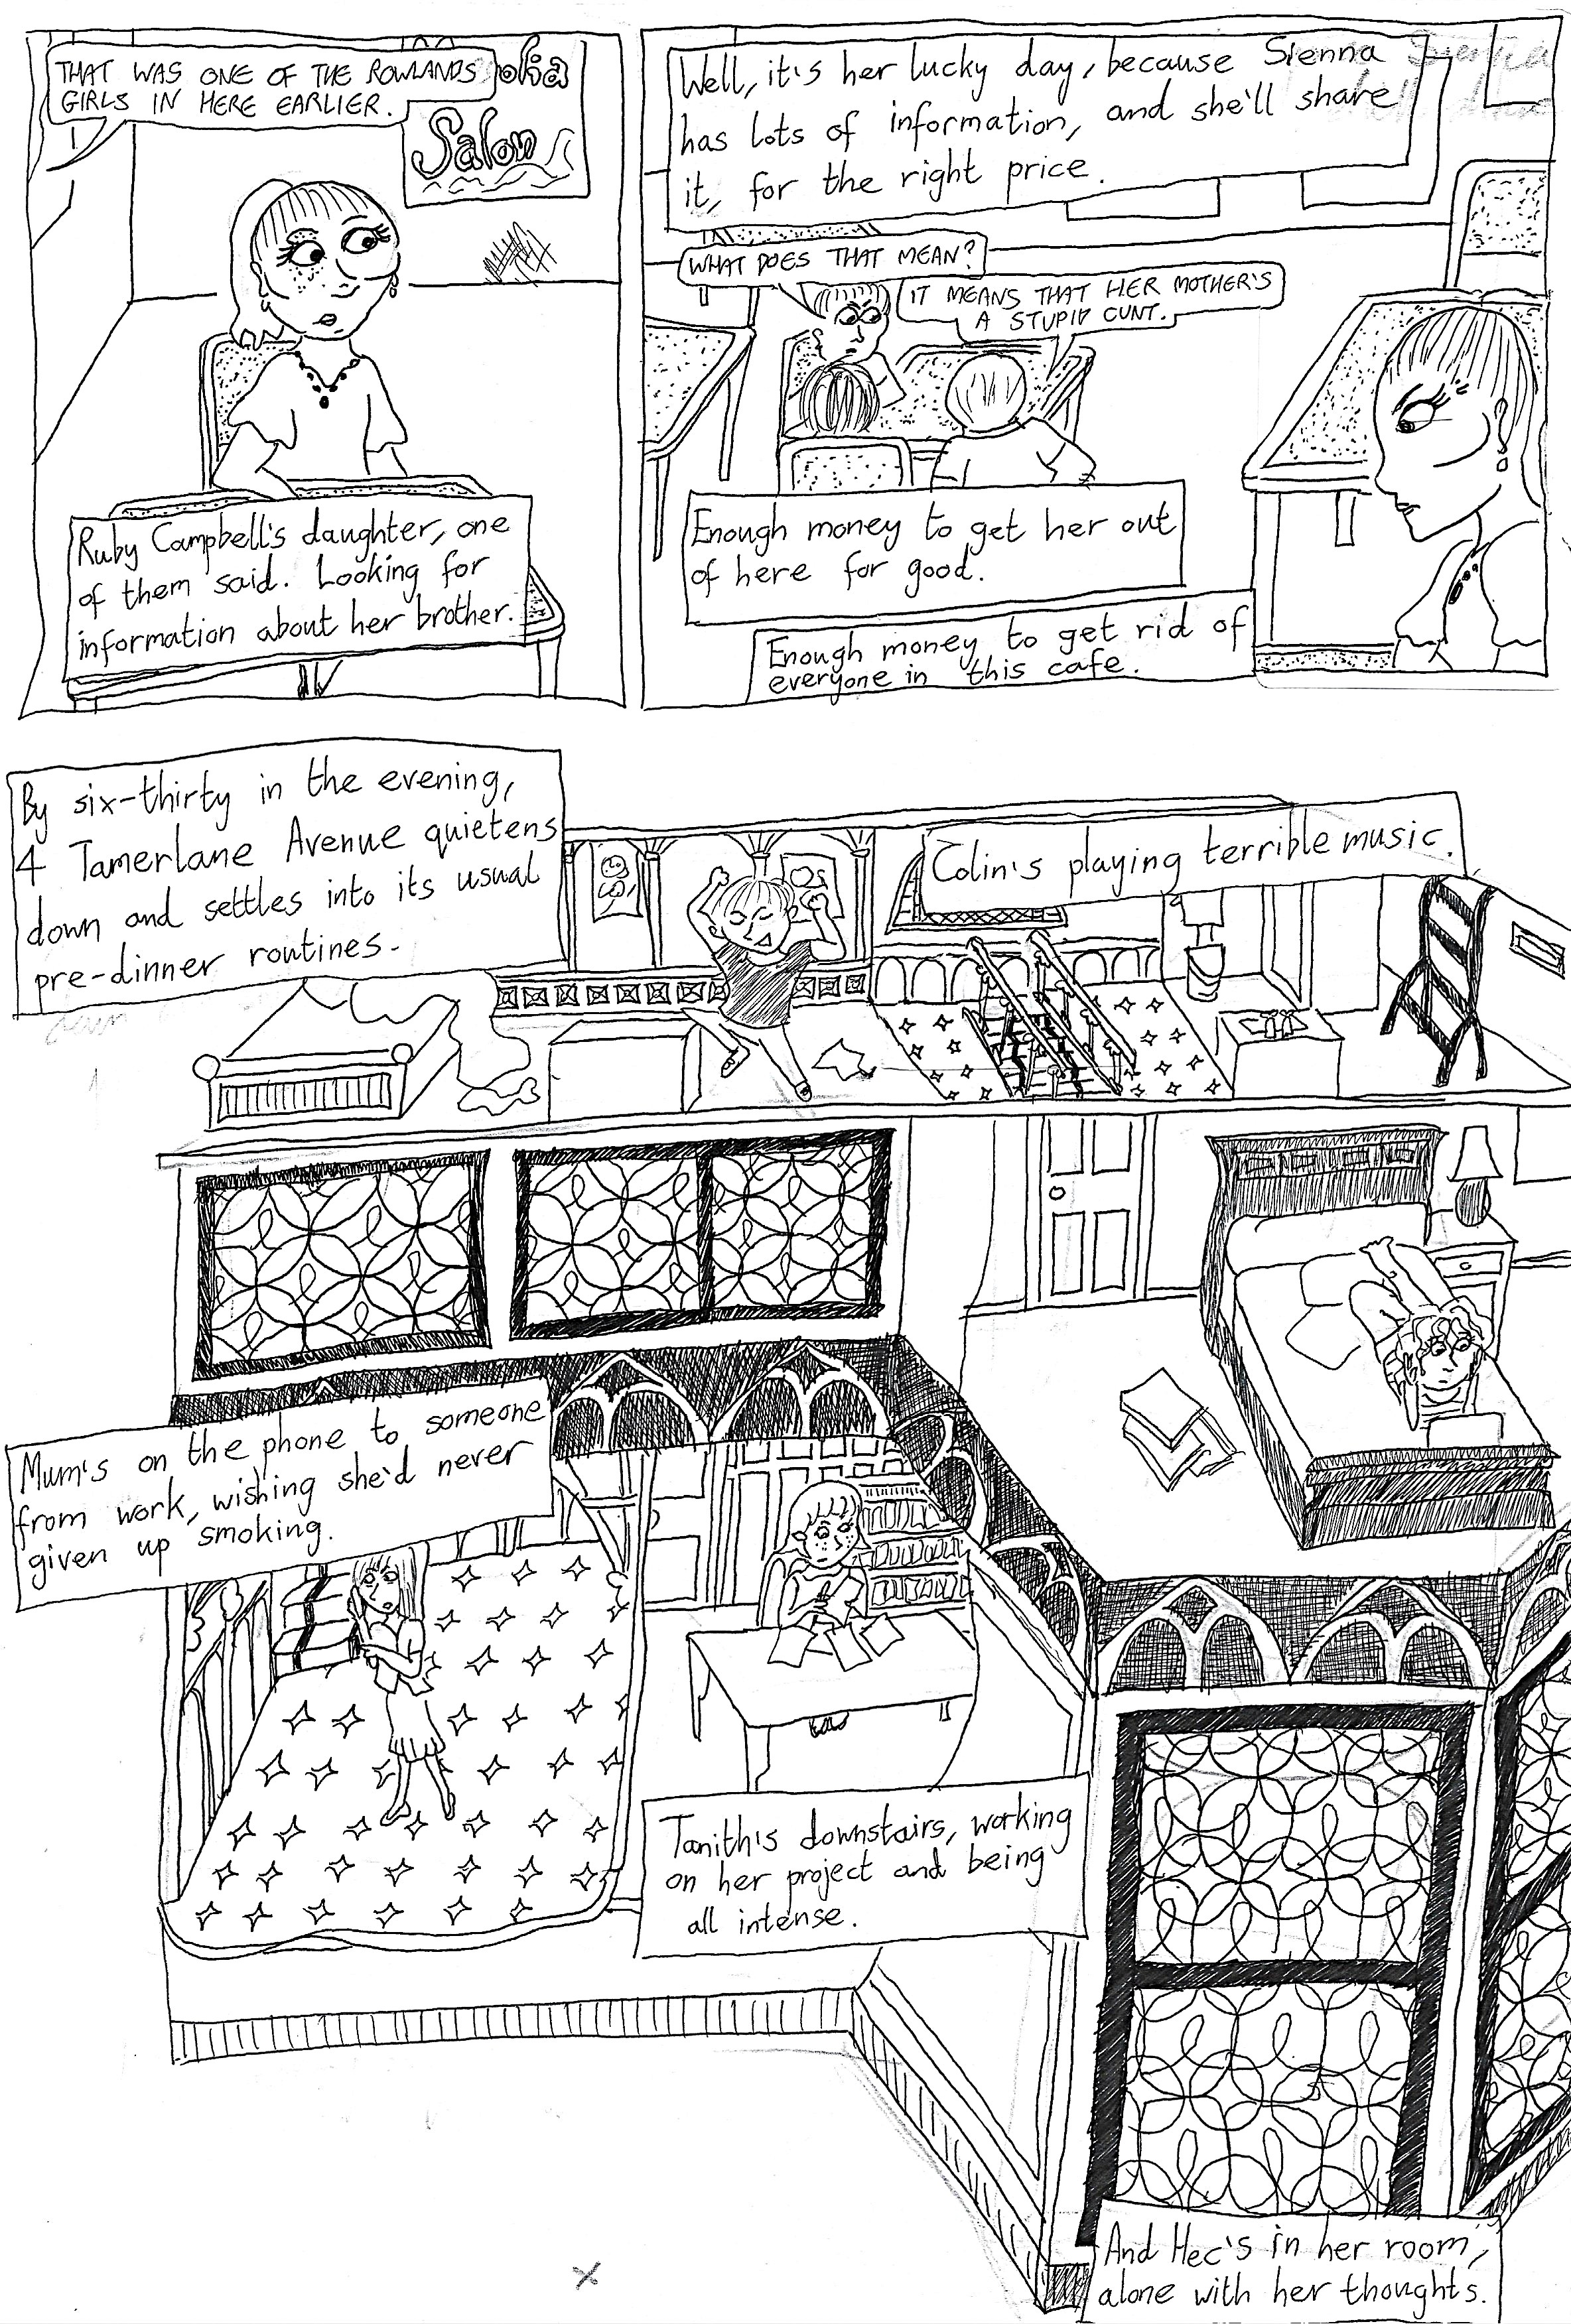 THAT WAS ONE OF THE ROWLANDS
GIRLS IN HERE EARLIER.
Salon
Ruby Campbell's daughter, one
of them said. Looking for
information about her brother.
Well, it's her lucky day, because Sienna
has lots of information, and she'll share
it, for the right price.
WHAT DOES THAT MEAN?
IT MEANS THAT HER MOTHER'S
A STUPID CUNT.
Enough money to get her out
of here for good.
Enough money to get rid of
everyone in this cafe.
By six-thirty in the evening,
4 Tamerlane Avenue quietens
down and settles into its usual
pre-dinner routines.
Colin's playing terrible music.
Mum's on the phone to someone
from work, wishing she'd never
given up smoking.
Tanith's downstairs, working
on her project and being
all intense.
And Hec's in her room,
alone with her thoughts.